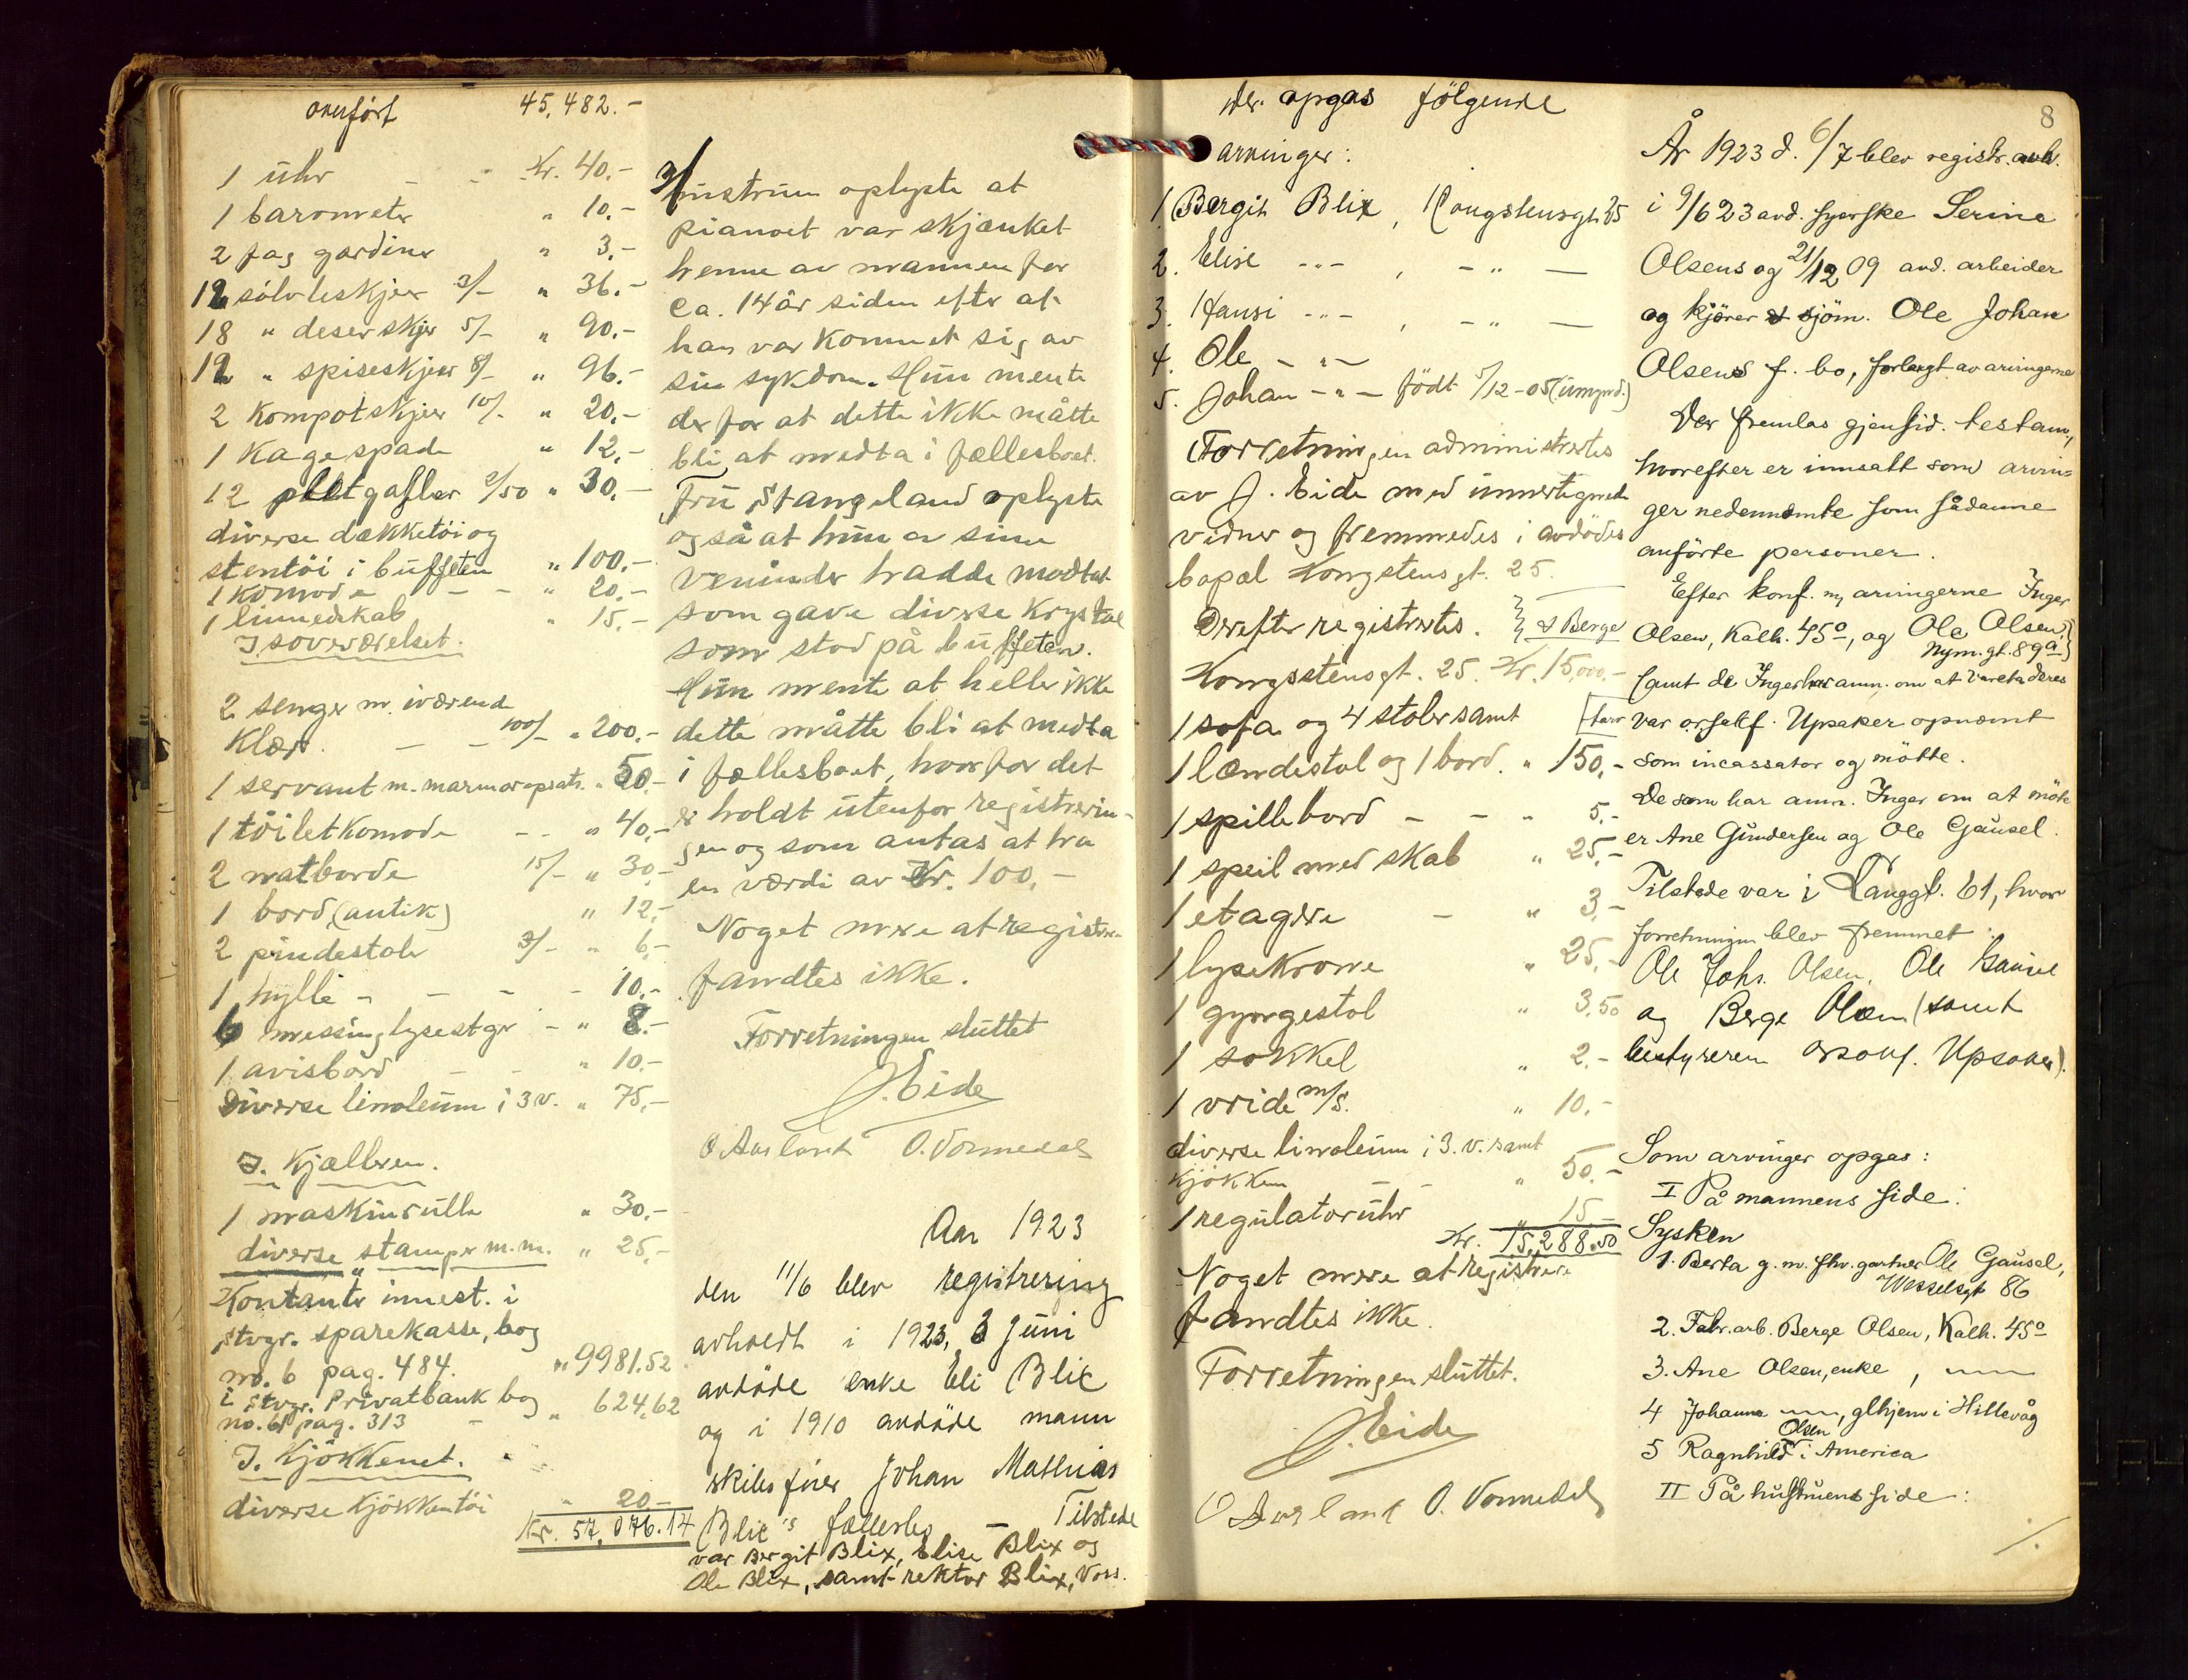 overført 45,482.-
1 uhr - - Kr. 40.-
1 barometer " 10.-
2 fag gardiner " 3.-
12 sølvteskjeer 3/- " 36.-
18 " desertskjer 5/- " 90.-
12 " spiseskjeer 8/- " 96.-
2 Kompotskjeer 10/- " 20.-
1 Kagespade " 12.-
12 pletgafler 2/50 " 30.-
diverse dækketöi og
stentöi i buffeten " 100.-
1 Komode - - " 20.-
1 linnedskab " 15.-
I soveværelset.
2 senger m. iværende
Klær. - - 100/- " 200.-
1 servant m. marmoropsats. " 50.-
1 töiletkomode - - " 40.-
2 natborde 15/- " 30.-
1 bord (antik) " 12.-
2 pindestoler 3/- " 6.-
1 hylle - - - - 10.-
6 messinglysestger - " 8.-
1 avisbord - - " 10.-
Diverse linoleum i 3 v. " 75.-
I. Kjælleren.
1 maskinrulle " 30.-
diverse stamper m.m. " 25.-
Kontanter innest. i
Stvgr. sparekasse, bog
no. 6 pag. 484. " 9981.52
i Stvgr. Privatbank bog
no. 61 pag. 313 - " 624,62
I. Kjökkenet.
diverse Kjökkentöi " 20.-
Kr. 57,076.14
Hustruen oplyste at
pianoet var skjænket
henne av mannen for
ca. 14 år siden efter at
han var kommet sig av
sin sykdom. Hun mente
derfor at dette ikke måtte
bli at medta i fællesboet.
Fru Stangeland oplyste
også at hun av sine
veninder hadde modtat
som gave diverse Krystal
som stod på buffeten.
Hun mente at heller ikke
dette måtte bli at medta
i fællesboet, hvorfor det
er holdt utenfor registrerin-
gen og som antas at ha
en værdi av Kr. 100.-
Noget mere at registrere
fandtes ikke.
Forretningen sluttet
J. Eide
O Aurland O. Vonnedal
Aar 1923
den 11/6 blev registrering
avholdt i 1923, 3 juni
avdöde enke Eli Blix
og i 1910 avdöde mann
skibsförer Johan Mathias
Blix's fællesbo - Tilstede
var Bergit Blix, Elise Blix og
Ole Blix, samt rektor Blix, Voss.
der opgas fölgende
arvinger:
1. Bergit Blix, Kongstensgt 25
2. Elise -"- , - " -
3. Hansi -"- , - " -
4. Ole - " -
5. Johan - " - födt 5/12-05 (umynd.)
Forretningen administrertes
av J. Eide med undertegnede
vidner og fremmedes i avdödes
bopæl Kongstensgt. 25.
Derefter registrertes.
Kongsstensgt. 25. Kr. 15,000.-
1 sofa og 4 stoler samt
1 lændestol og 1 bord. " 150.-
1 spillebord - - " 5.-
1 speil med skab " 25.-
1 etagere - " 3.-
1 lysekrone " 25.-
1 gyngestol " 3.50
1 sokkel " 2.-
1 vride m/s. " 10.-
diverse linoleum i 3. v. samt
Kjökken - - " 50.-
1 regulatoruhr " 15.-
Kr. 15,288.50
Noget mere at registrere
fandtes ikke.
Forretningen sluttet.
J. Eide
O Aurland O. Vonnedal
8
År 1923 d. 6/7 blev registr. avh.
i 9/6 23 avd. syerske Serine
Olsens og 21/12 09 avd. arbeider
og kjörer sjöm. Ole Johan
Olsens f. bo, forlangt av arvingerne
Der fremlas gjensid. testam.,
hvorefter er innsatt som arvin-
ger nedennævnte som sådanne
anförte personer.
Efter konf. m. arvingerne Inger
Olsen, Kalh. 45º, og Ole Olsen,
Nym. gt. 89a)
& Berge
(samt de Inger har anm. om at vareta deres
tarv var orsakf. Upsaker opnævnt
som incassator og mötte.
De som har anm. Inger om at möte
er Ane Gundersen og Ole Gausel.
Tilstede var i Langgt. 61, hvor
forretningen blev fremmet:
Ole Johs. Olsen, Ole Gausel
og Berge Olsen (samt
bestyreren Upsaker).
Som arvinger opgas:
I På mannens side:
Sysken
1. Berta g. m. fhv. gartner Ole Gausel,
Wesselsgt 86
2. Fabr. arb. Berge Olsen, Kalh. 45º
3. Ane Olsen, enke, -"-
4 Johanna -"-, glhjem i Hillevåg
5 Ragnhild Olsen i America
II På hustruens side: